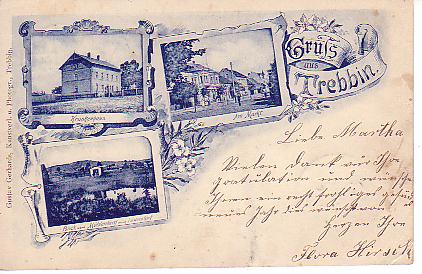 Gruss
aus
Trebbin.
Krankenhaus
Am Markt.
Blick
Gustav Gerhards, Kunstverl. u. Photogr., Trebbin.
Liebe Martha
Vielen Dank für Ihre
Gratulation und wünsche
Ihnen ein recht frohes
neues Jahr
Herzen Ihre
Flora Hirsch